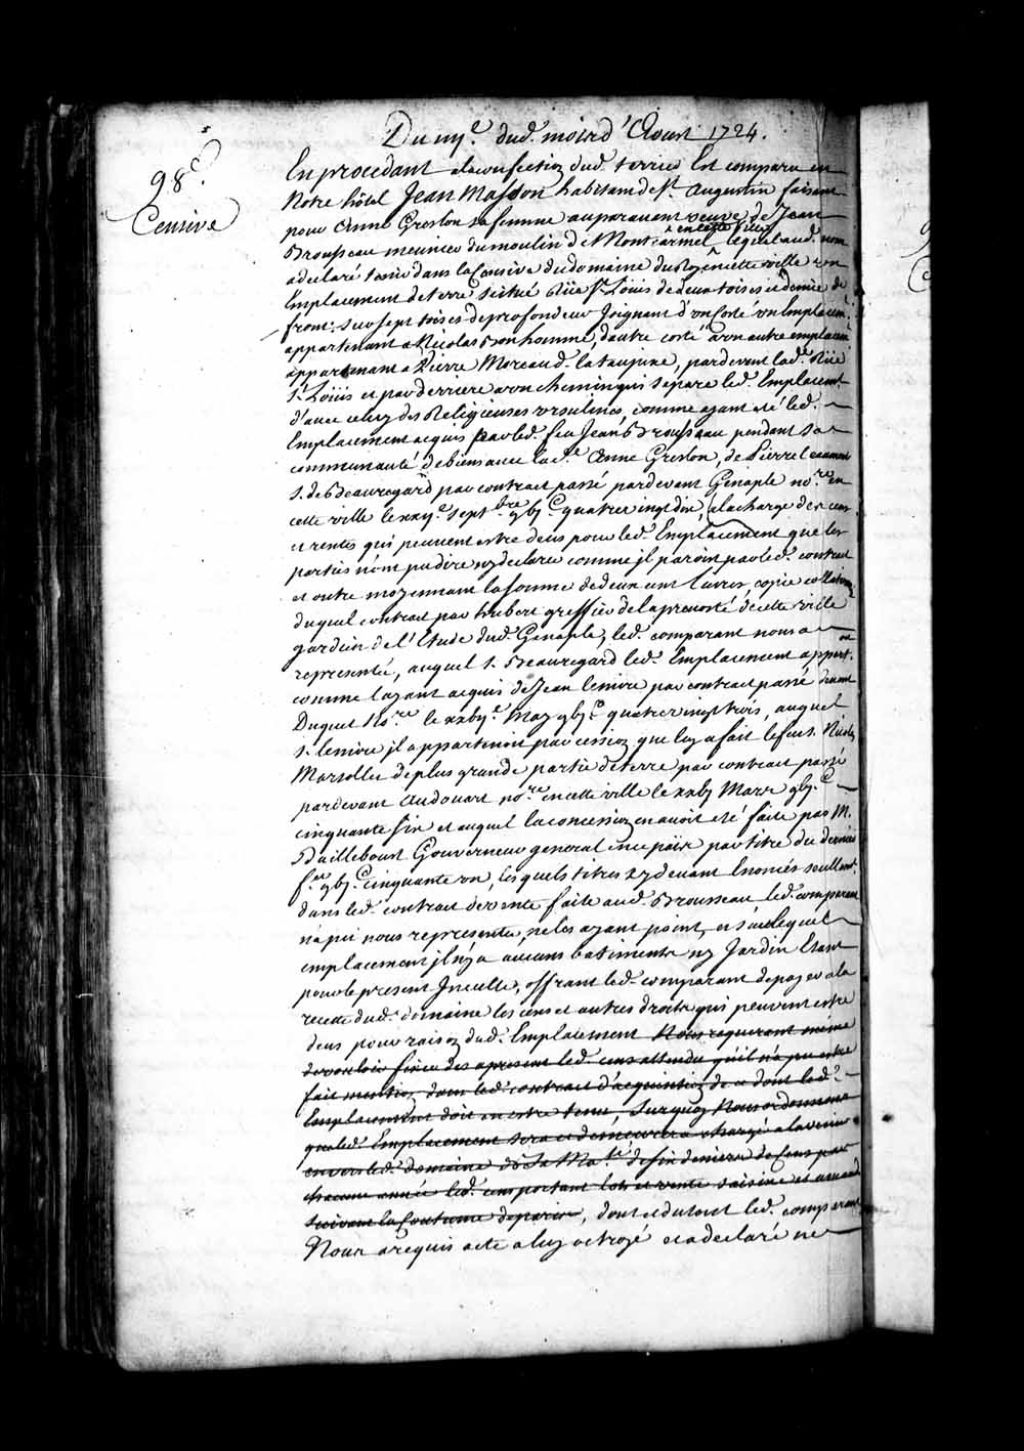 Du iiij.e dud. mois d'Aoust 1724.
98e.
Censive
En procedant a la confection dud. terrier Est comparu en
Notre hôtel Jean Masson habitant de St. Augustin faisant
pour Anne Greslon sa femme auparavant veuve de Jean
Brousseau meunier du moulin de Montcarmel en cette ville lequel aud. nom
a declaré tenir dans la Censive du domaine du Roy en cette ville un
Emplacement de terre scitué Rüe St. Loüis de deux toises et demie de
front sur sept toises de profondeur Joignant d'un costé un Emplacemt.
appartenant a Nicolas Bonhomme, d'autre costé a un autre emplacemt
appartenant a Pierre Moreau d. la taupine, par devant lad. Rüe
St. Loüis et par derriere a un chemin qui separe led. Emplacemt
d'avec celuy des Religieuses ursulines, comme ayant eté led.
Emplacement acquis par led. feu Jean Brousseau pendant sa
communauté de biens avec lad.e Anne Greslon, de Pierre
s. de Beauregard par contract passé pardevant Genaple no.re en
cette ville le xxij.e septbre gbj.c quatre vingt dix, a la charge des cens
et rentes qui peuvent estre deus pour led. Emplacement que les
parties n'ont pu dire ny declarer comme jl paroist par led. contract
et outre moyennant la somme de deux cent livres, copie collat.
duquel contract par hubert greffier de la prevosté de cette ville
gardien de l'Etude dud. Genaple, led. comparant nous a
representé, auquel s. Beauregard led. Emplacement appart.
comme l'ayant acquis de Jean lemire par contract passé devant
Duquet No.re le xxbj.e May gbj.c quatre vingt trois, auquel
s. lemire jl appartenoit par cession que luy a fait le feu s. Nicolas
Marsollet de plus grande partie de terre par contract passé
pardevant Audouart no.re en cette ville le xxbj Mars gbj.c
cinquante six et auquel la concession en avoit eté faite par M.
Dailleboust Gouverneur general en ce païs par titre du dernier
f.er gbj.c cinquante un, les quels titres cy devant Enoncés seullemt.
dans led. contract de vente faite aud. Brousseau led. comparant
n'a pû nous representer, ne les ayant point, et sur lequel
emplacement jl n'y a aucuns batiments ny Jardin Etant
pour le present Inculte, offrant led. comparant de payer a la
recette dud. domaine les cens et autres droits qui peuvent estre
deus pour raison dud. Emplacement Nous requerant même
de vouloir fixer des apresent led. cens attendu qu'il n'a pu estre
fait mention dans led. contract d'acquisition de ce dont led.
Emplacement doit en estre tenu, Surquoy Nous ordonnons
que led. Emplacement sera et demeurera chargé a l'avenir
envers led. domaine de Sa Ma.té de six deniers de Cens par
chacune année led. cens portant lots et vente saisine et amende
suivant la Coutume de paris, dont et du tout led. comparant
Nous a requis acte a luy octroyé et a declaré ne